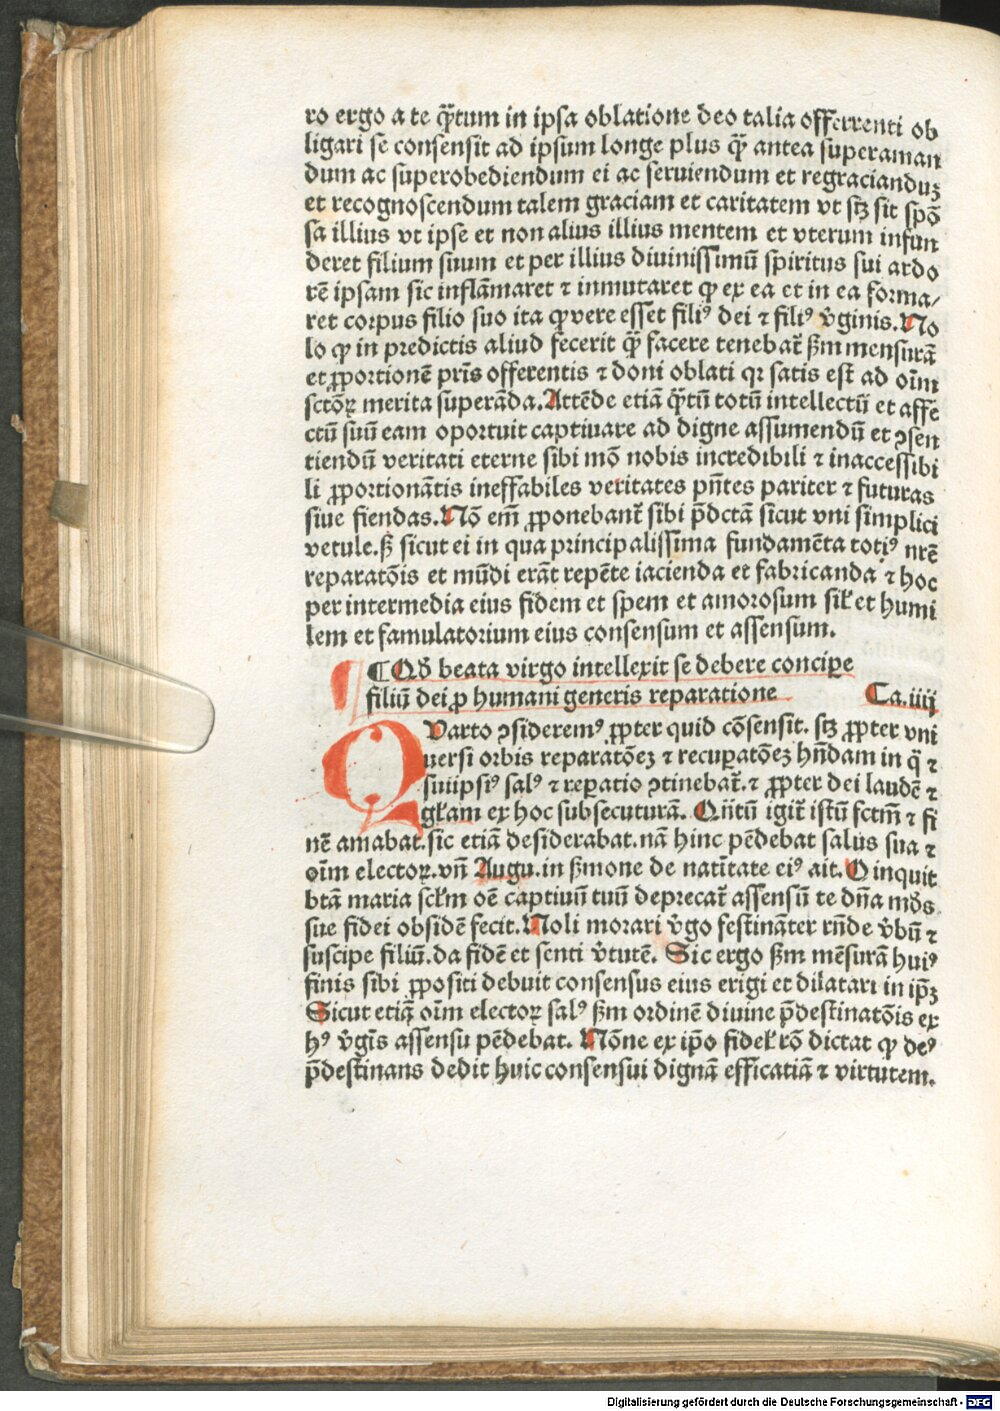 ro ergo a te q̄ꝫtum in ipsa oblatione deo talia offerrenti ob
ligari se consensit ad ipsum longe plus q̄ꝫ antea superaman
dum ac superobediendum ei ac seruiendum et regracianduꝫ
et recognoscendum talem graciam et caritatem vt sꝫ sit spō
sa illius vt ipse et non alius illius mentem et vterum infun
deret filium suum et per illius diuinissimū spiritus sui ardo
rē ipsam sic inflāmaret ⁊ inmutaret ꝙ ex ea et in ea forma/
ret corpus filio suo ita ꝙ vere esset filiꝰ dei ⁊ filiꝰ v̓ginis. No
lo ꝙ in predictis aliud fecerit q̄ꝫ facere tenebat᷑ ẜm mensurā
et ꝓportionē pr̄is offerentis ⁊ doni oblati qꝛ satis est ad oīm
sctōꝝ merita superāda. Attēde etiā q̄ꝫtū totū intellectū et affe
ctū suū eam oportuit captiuare ad digne assumendū et ꝯsen
tiendū veritati eterne sibi mō nobis incredibili ⁊ inaccessibi
li ꝓportionātis ineffabiles veritates pn̄tes pariter ⁊ futuras
siue fiendas. Nō em̄ ꝓponebant᷑ sibi p̄dctā sicut vni simplici
vetule. ẜ sicut ei in qua principalissima fundamēta totiꝰ nr̄e
reparatōis et mūdi erāt repēte iacienda et fabricanda ⁊ hoc
per intermedia eius fidem et spem et amorosum sil̓ et humi
lem et famulatorium eius consensum et assensum.
¶ Qd̓ beata virgo intellexit se debere concipe
filiū dei ꝓ humani generis reparatione Ca. iiij
QVarto ꝯsideremꝰ ꝓpter quid cōsensit. sꝫ ꝓpter vni
uersi orbis reparatōeꝫ ⁊ recuꝑatōeꝫ hn̄dam in q̄ ⁊
suiipsiꝰ salꝰ ⁊ reꝑatio ꝯtinebat᷑. ⁊ ꝓpter dei laudē ⁊
gl̓am ex hoc subsecuturā. Qn̄tū igit᷑ istū fctm̄ ⁊ fi
nē amabat. sic etiā desiderabat. nā hinc pēdebat salus sua ⁊
oīm electoꝝ. vn̄ Augu. in ẜmone de natītate eiꝰ ait. O inquit
btā maria scl̓m oē captiuū tuū deprecat᷑ assensū te dn̄a mōs
sue fidei obsidē fecit. Noli morari v̓go festināter rn̄de v̓bū ⁊
suscipe filiū. da fidē et senti v̓tutē. Sic ergo ẜm mēsurā huiꝰ
finis sibi ꝓpositi debuit consensus eius erigi et dilatari in ip̄ꝫ
Sicut etiā oīm electoꝝ salꝰ ẜm ordinē diuine p̄destinatōis ex
hꝰ v̓gīs assensu pēdebat. Nōne ex ip̄o fidel̓ rō dictat ꝙ deꝰ
p̄destinans dedit huic consensui dignā efficatiā ⁊ virtutem.
Digitalisierung gefördert durch die Deutsche Forschungsgemeinschaft - DFG